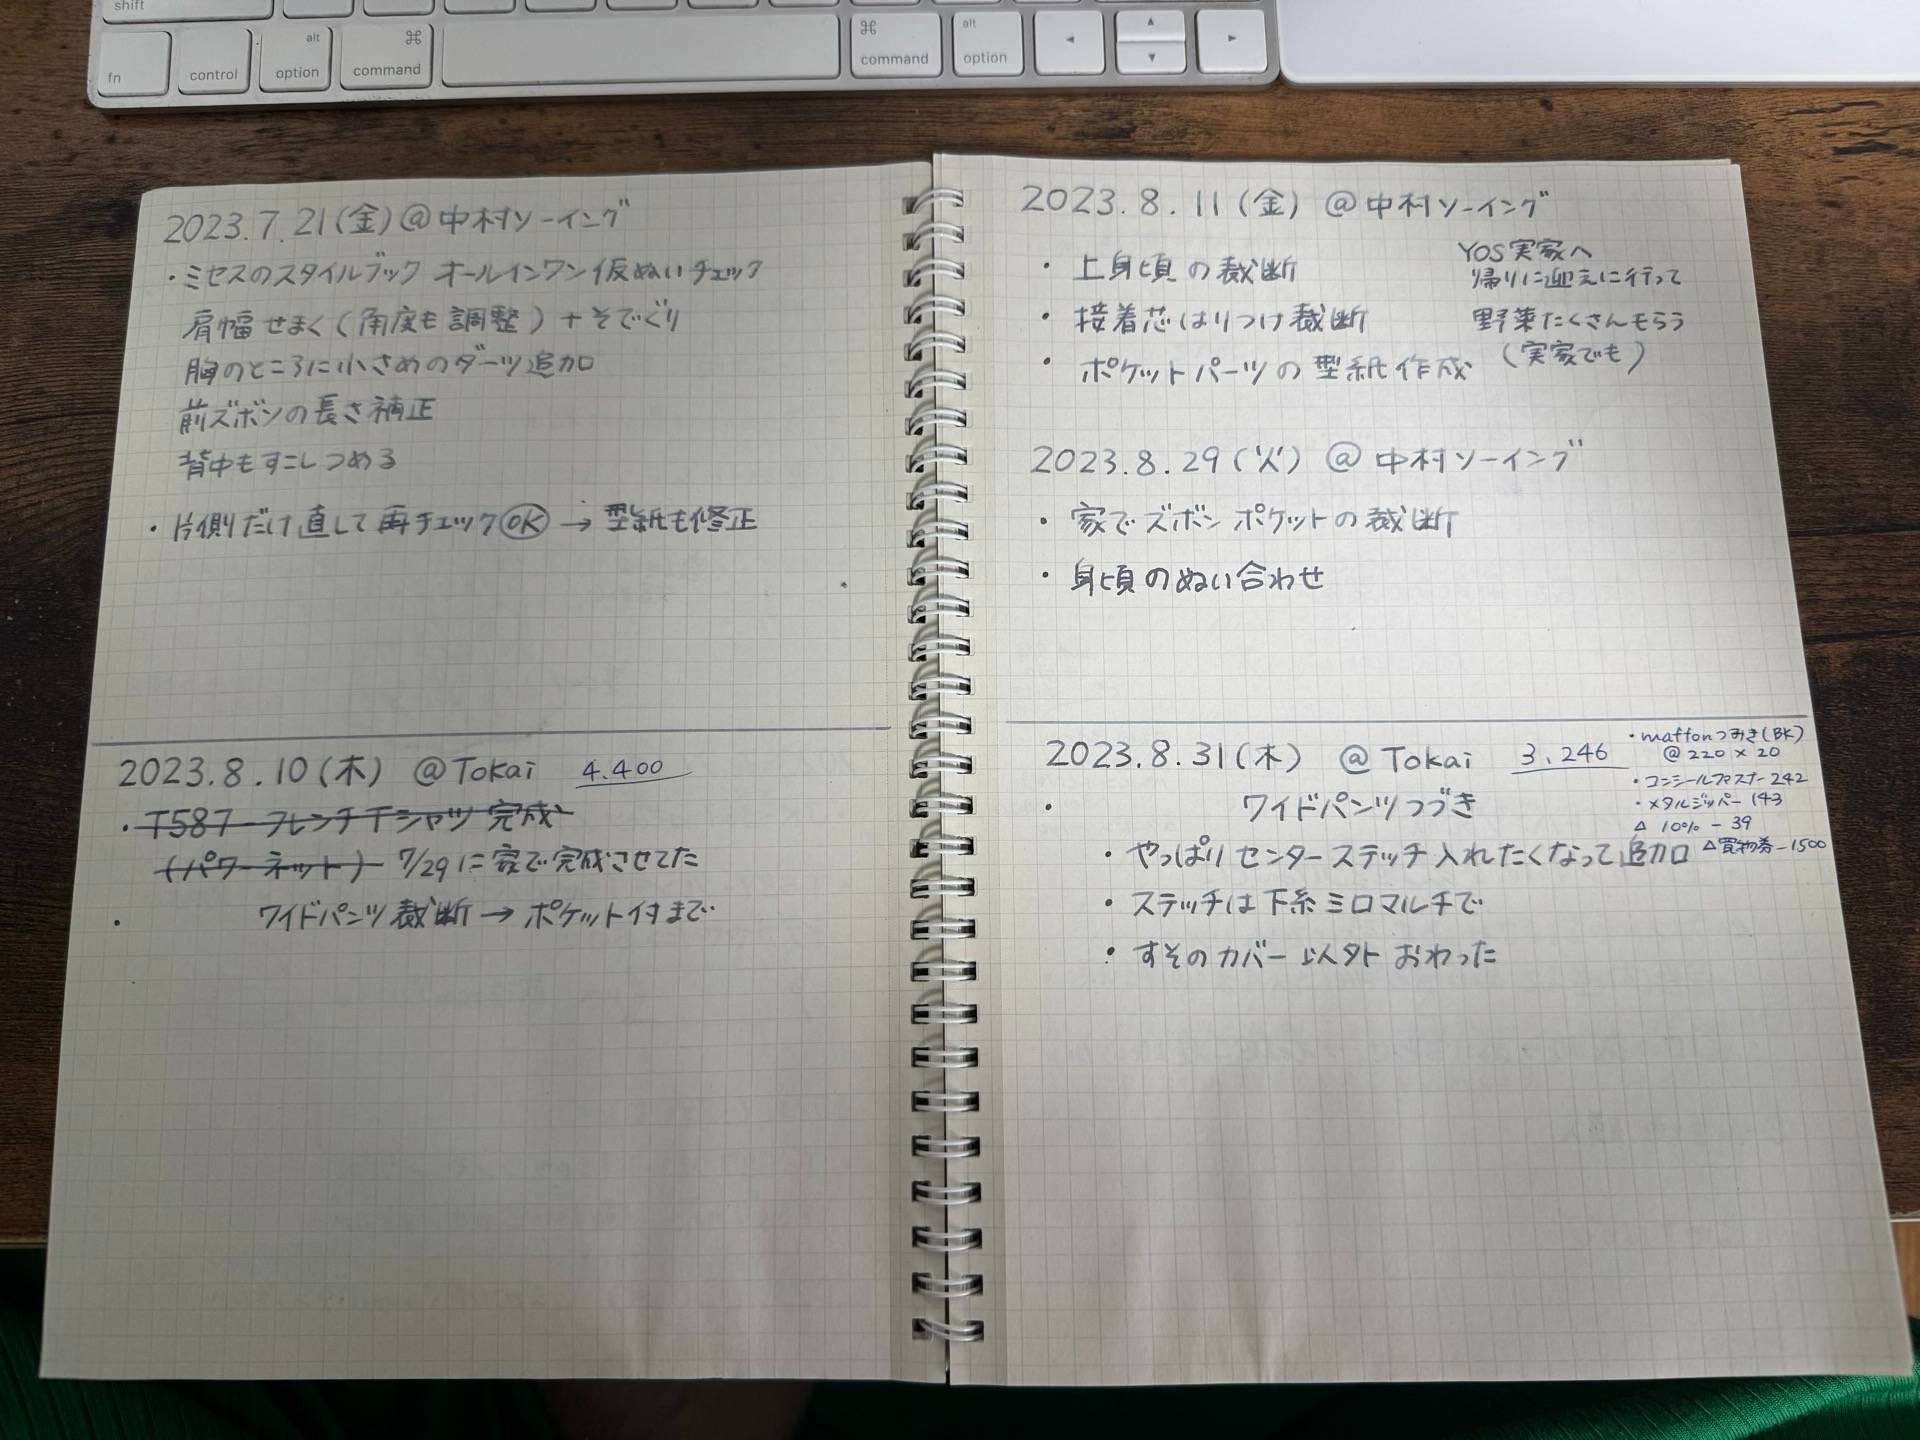 shift
fn
control
alt
option
⌘
command
⌘
command
alt
option
◄
▲
▼
►
2023.7.21(金)@中村ソーイング
・ミセスのスタイルブック オールインワン仮ぬいチェック
肩幅せまく(角度も調整)+そでぐり
胸のところに小さめのダーツ追加
前ズボンの長さ補正
背中もすこしつめる
・片側だけ直して再チェックOK→型紙も修正
2023.8.10(木) @Tokai 4.400
・T587 フレンチTシャツ 完成
(パワーネット) 7/29に家で完成させてた
・ ワイドパンツ裁断→ポケット付まで
2023.8.11(金) @中村ソーイング
・上身頃の裁断
・接着芯はりつけ裁断
・ポケットパーツの型紙作成
YOS実家へ
帰りに迎えに行って
野菜たくさんもらう
(実家でも)
2023.8.29(火) @中村ソーイング
・家でズボンポケットの裁断
・身頃のぬい合わせ
2023.8.31(木) @Tokai 3,246
・ ワイドパンツつづき
・やっぱりセンターステッチ入れたくなって追加
・ステッチは下糸ミロマルチで
・すそのカバー以外おわった
・maffonつみき(BK)
@220×20
・コンシールファスナー242
・メタルジッパー 143
△ 10% -39
△買物券-1500